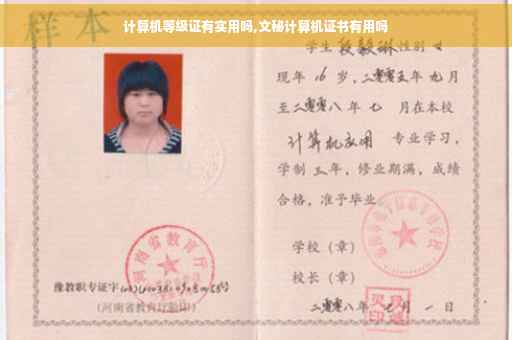 计算机等级证有实用吗,文秘计算机证书有用吗
样本
学生段毅琳性别女
现年16岁,二零零五年九月
至二零零八年七月在本校
计算机应用 专业学习,
学制三年,修业期满,成绩
合格,准予毕业。
学校(章)
校长(章)
二零零八年七月一日
河南省教育厅
豫教职专证字
(河南省教育厅验印)